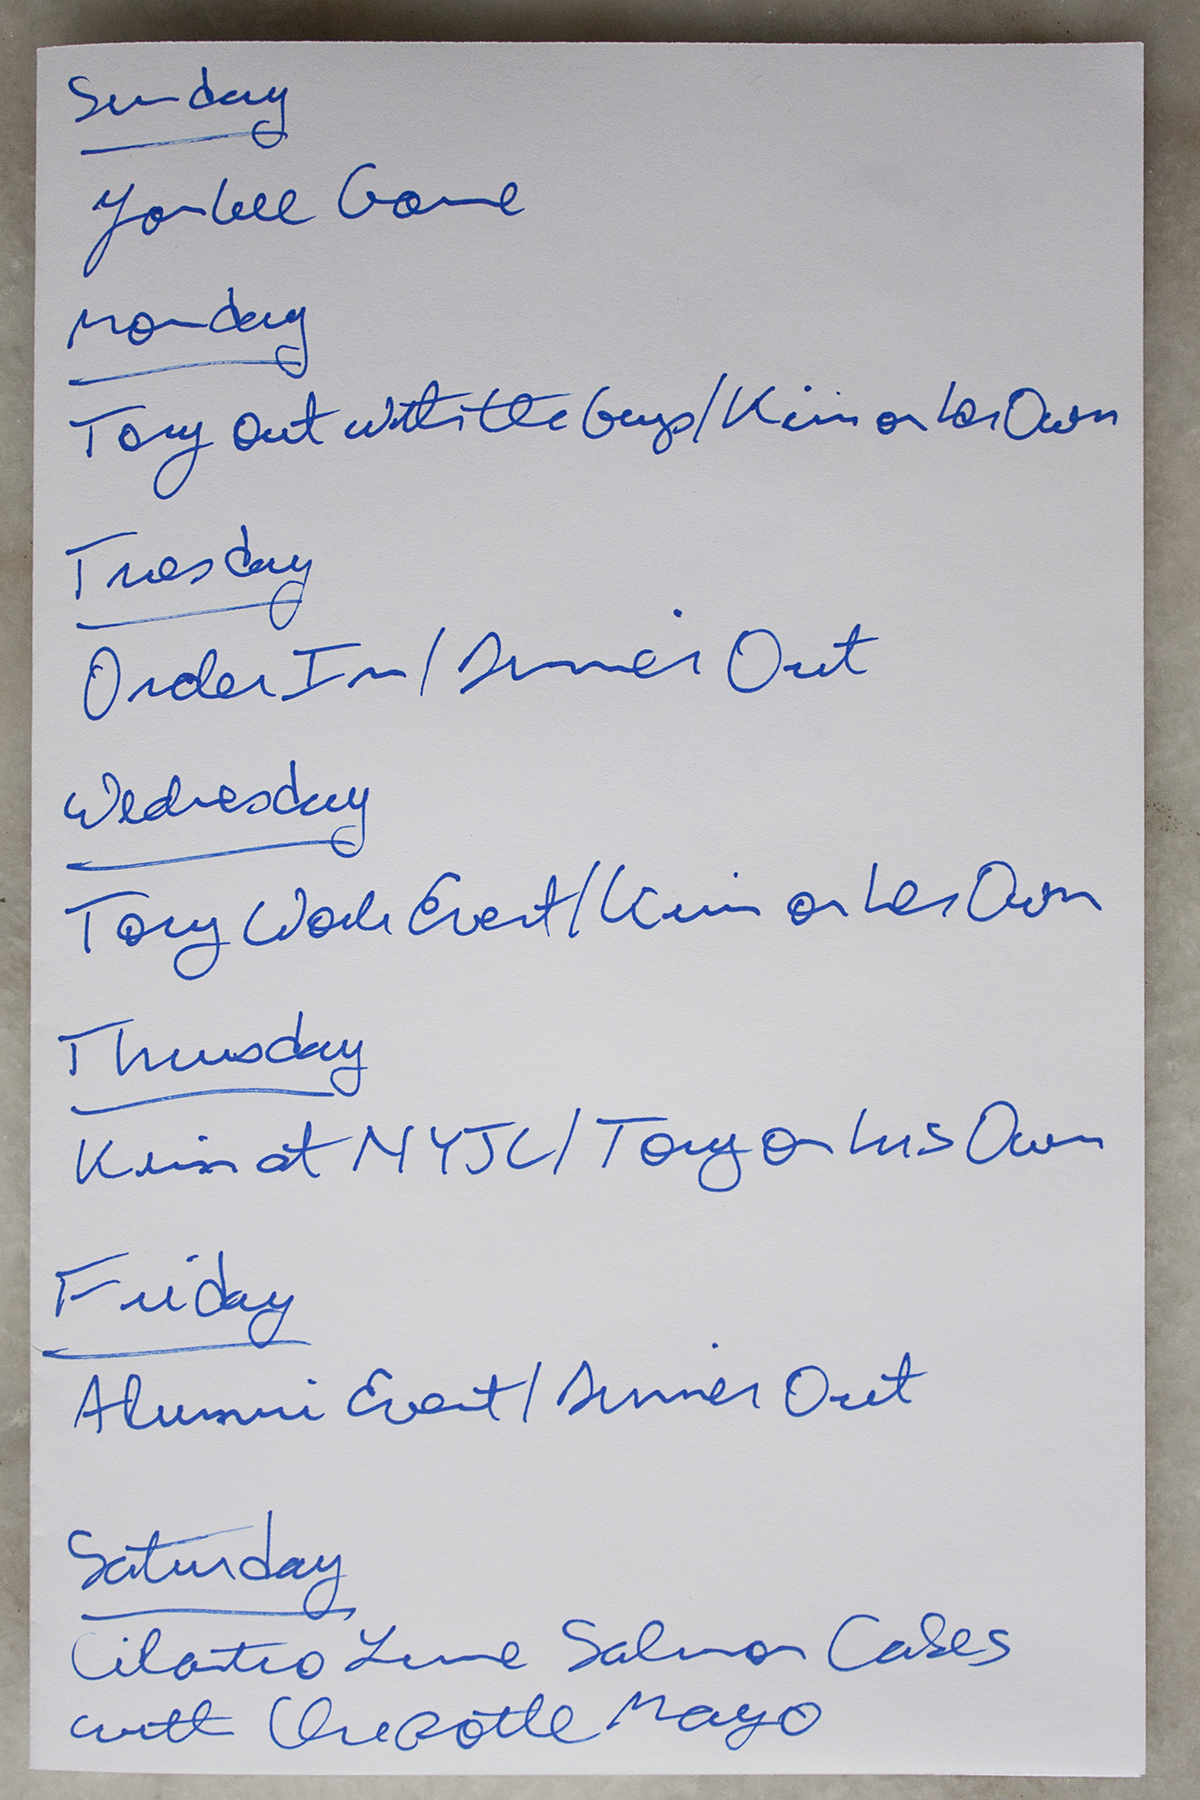 Sunday
Yankee Game
Monday
Tory Out with the Guys/Kim on her Own
Tuesday
Order In/Dinner Out
Wednesday
Tory Work Event/Kim on her Own
Thursday
Kim at NYJL/Tory on his Own
Friday
Alumni Event/Dinner Out
Saturday
Cilantro Lime Salmon Cakes
with Chipotle Mayo